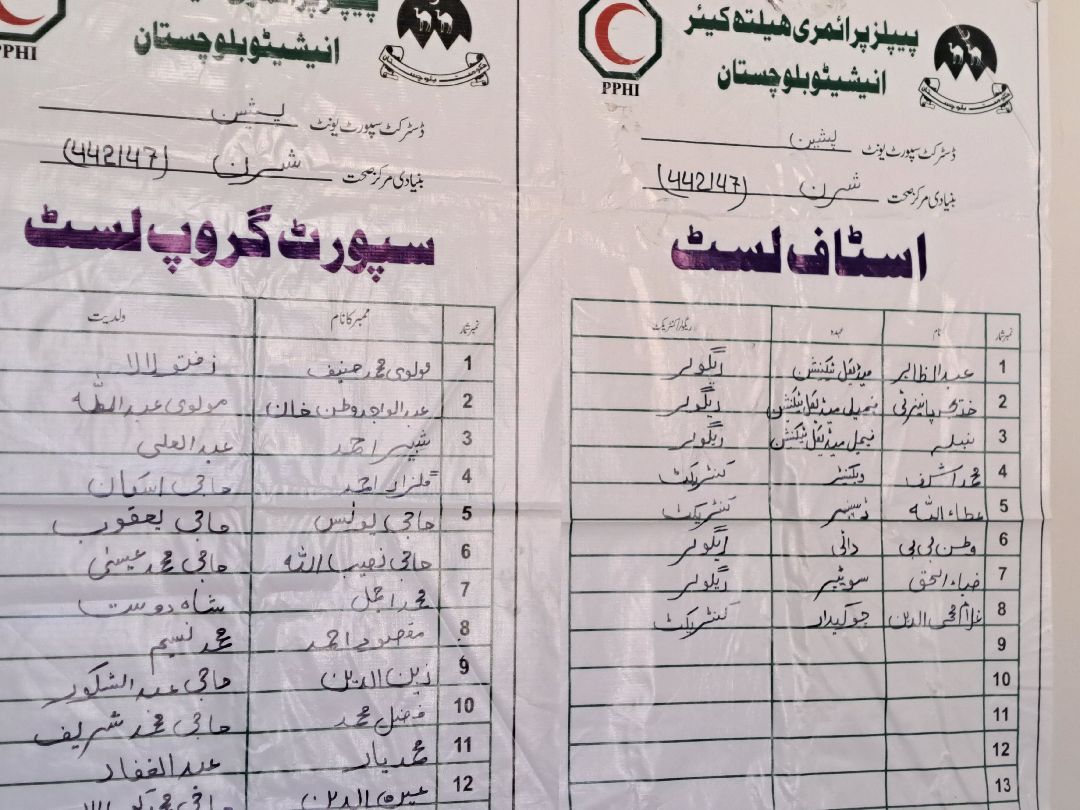 پیپلز پرائمری ھیلتھ کیئر
انیشیٹو بلوچستان
PPHI
ڈسٹرکٹ سپورٹ یونٹ پشین
بنیادی مرکز صحت شرن (442147)
اسٹاف لسٹ
نمبر شمار نام عہدہ ریگولر/کنٹریکٹ
1 عبدالظاہر میڈیکل ٹیکنیشن ریگولر
2 فیمیل میڈیکل ٹیکنیشن ریگولر
3 نبیلہ فیمیل میڈیکل ٹیکنیشن ریگولر
4 محمد اشرف ویکسنٹر کنٹریکٹ
5 عطاء اللہ ڈسپنسر کنٹریکٹ
6 وطن بی بی دائی ریگولر
7 ضیاء الحق سویپر ریگولر
8 غلام محی الدین چوکیدار کنٹریکٹ
9
10
11
12
13
پیپلز پرائمری
انیشیٹو بلوچستان
PPHI
ڈسٹرکٹ سپورٹ یونٹ پشین
بنیادی مرکز صحت شرن (442147)
سپورٹ گروپ لسٹ
نمبر شمار ممبر کا نام ولدیت
1 مولوی محمد حنیف
2 عبدالواحد وطن خان مولوی عبداللہ
3 شبیر احمد عبدالعلی
4 گلزار احمد حاجی
5 حاجی یونس حاجی یعقوب
6 حاجی نصیب اللہ حاجی محمد عیسیٰ
7 محمد اجمل شاہ دوست
8 مقصود احمد محمد نسیم
9 زین الدین حاجی عبدالشکور
10 فضل محمد حاجی محمد شریف
11 محمد یار عبدالغفار
12 الدین حاجی محمد